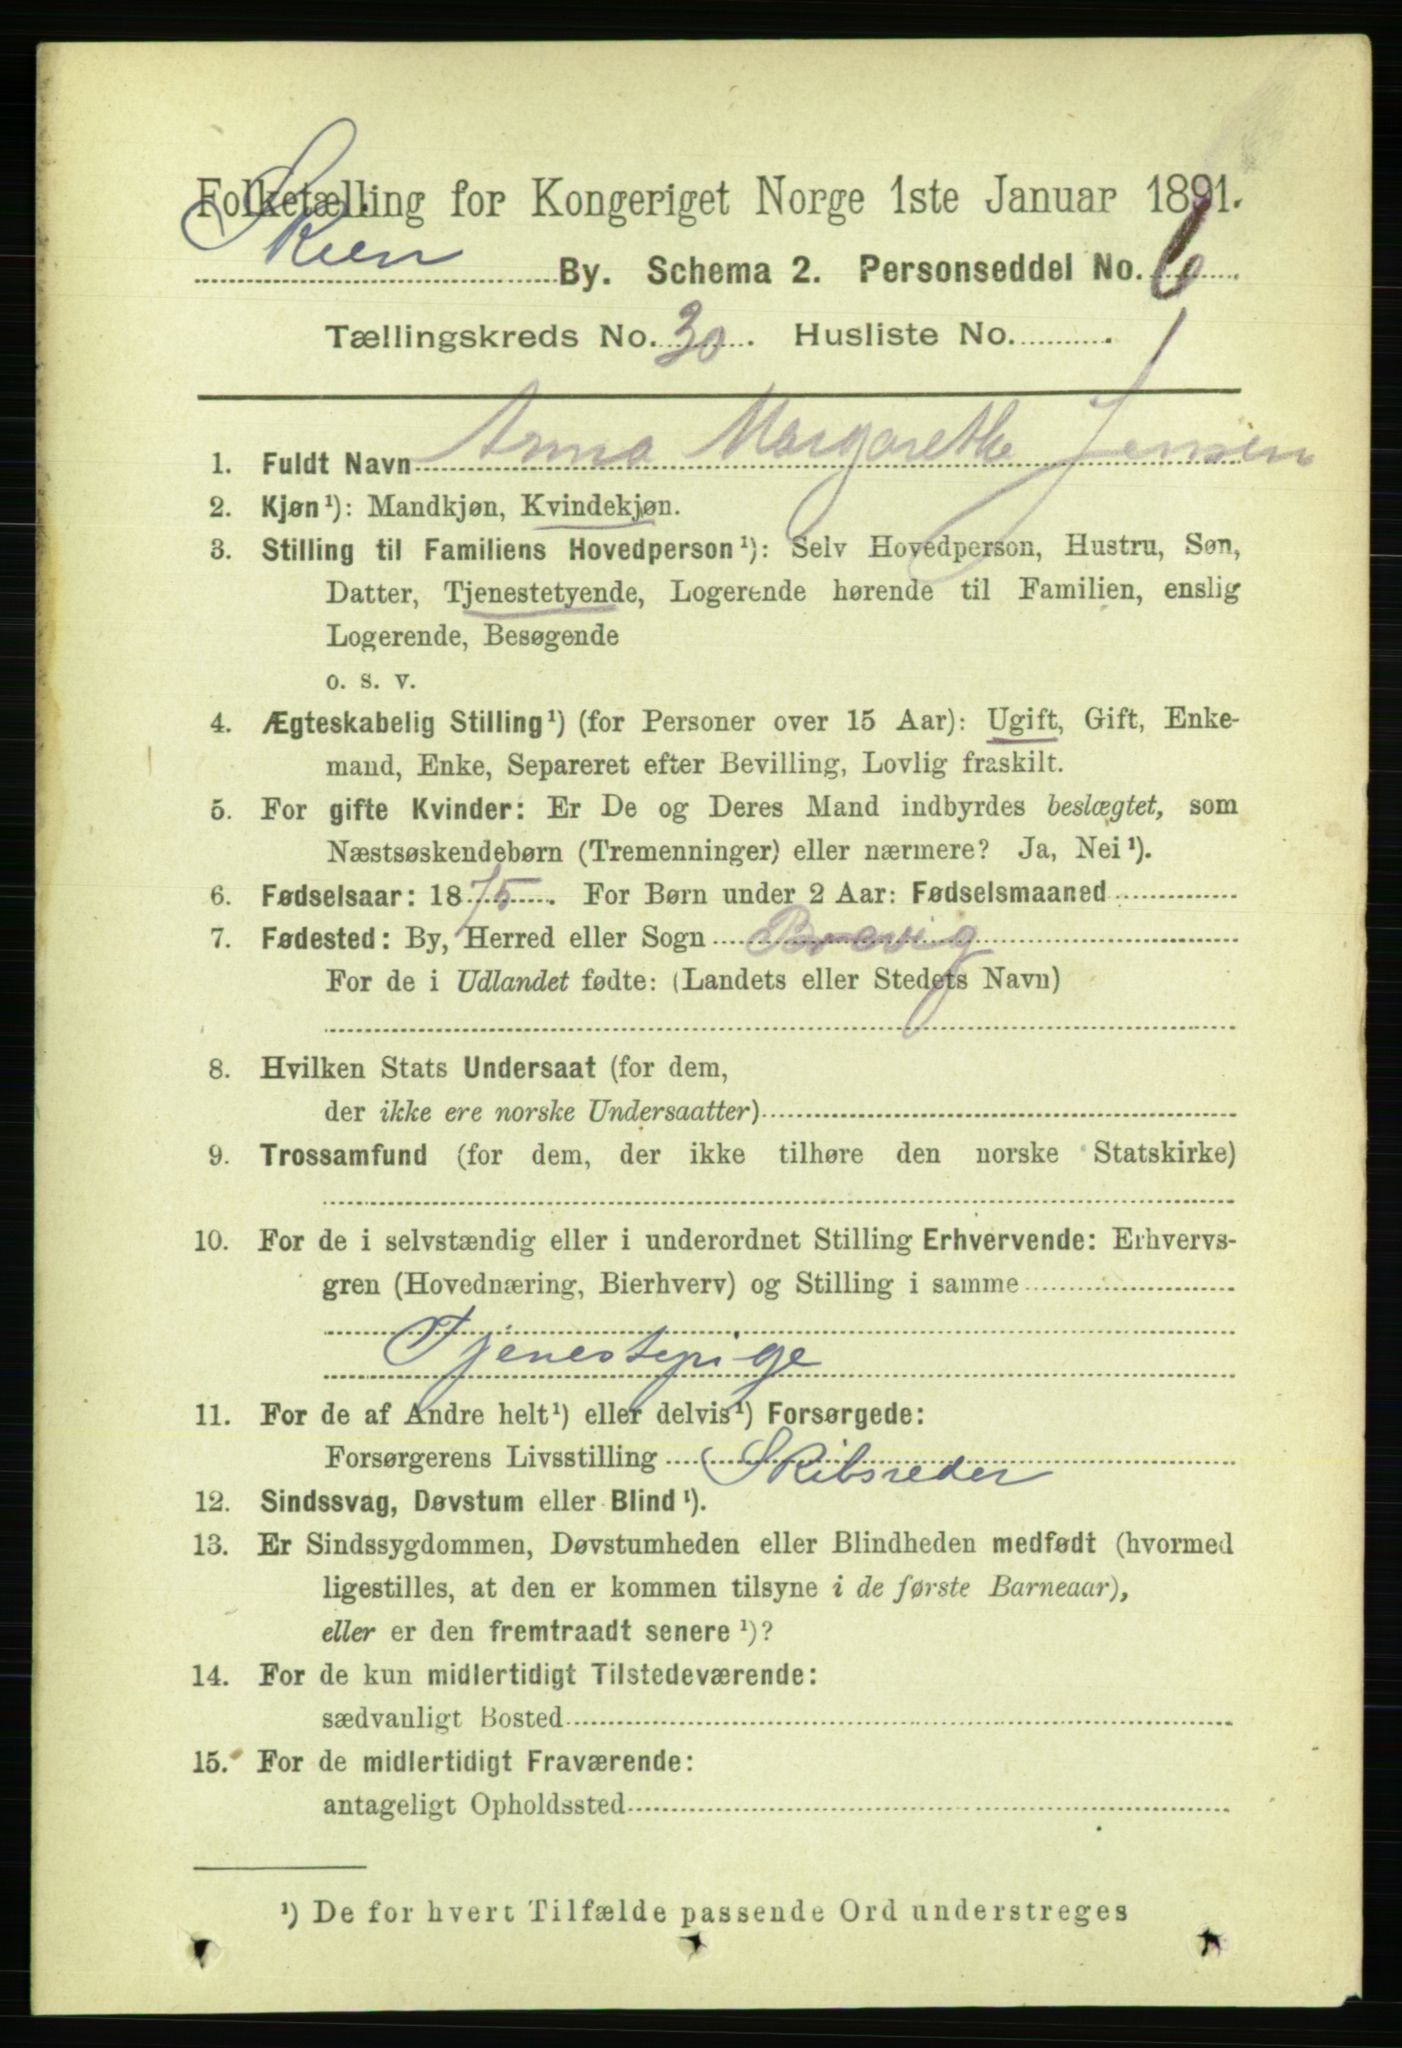 Folketælling for Kongeriget Norge 1ste Januar 1891.
Skien By. Schema 2. Personseddel No. 6
Tællingskreds No. 30. Husliste No. 1
1. Fuldt Navn Anna Margarethe Jensen
2. Kjøn¹): Mandkjøn, Kvindekjøn.
3. Stilling til Familiens Hovedperson¹): Selv Hovedperson, Hustru, Søn,
Datter, Tjenestetyende, Logerende hørende til Familien, enslig
Logerende, Besøgende
o. s. v.
4. Ægteskabelig Stilling¹) (for Personer over 15 Aar): Ugift, Gift, Enke-
mand, Enke, Separeret efter Bevilling, Lovlig fraskilt.
5. For gifte Kvinder: Er De og Deres Mand indbyrdes beslægtet, som
Næstsøskendebørn (Tremenninger) eller nærmere? Ja, Nei¹).
6. Fødselsaar: 1875. For Børn under 2 Aar: Fødselsmaaned
7. Fødested: By, Herred eller Sogn Brevig
For de i Udlandet fødte: (Landets eller Stedets Navn)
8. Hvilken Stats Undersaat (for dem,
der ikke ere norske Undersaatter)
9. Trossamfund (for dem, der ikke tilhøre den norske Statskirke)
10. For de i selvstændig eller i underordnet Stilling Erhvervende: Erhvervs-
gren (Hovednæring, Bierhverv) og Stilling i samme
Tjenestepige
11. For de af Andre helt¹) eller delvis¹) Forsørgede:
Forsørgerens Livsstilling Skibsreder
12. Sindssvag, Døvstum eller Blind¹).
13. Er Sindssygdommen, Døvstumheden eller Blindheden medfødt (hvormed
ligestilles, at den er kommen tilsyne i de første Barneaar),
eller er den fremtraadt senere¹)?
14. For de kun midlertidigt Tilstedeværende:
sædvanligt Bosted
15. For de midlertidigt Fraværende:
antageligt Opholdssted
¹) De for hvert Tilfælde passende Ord understreges